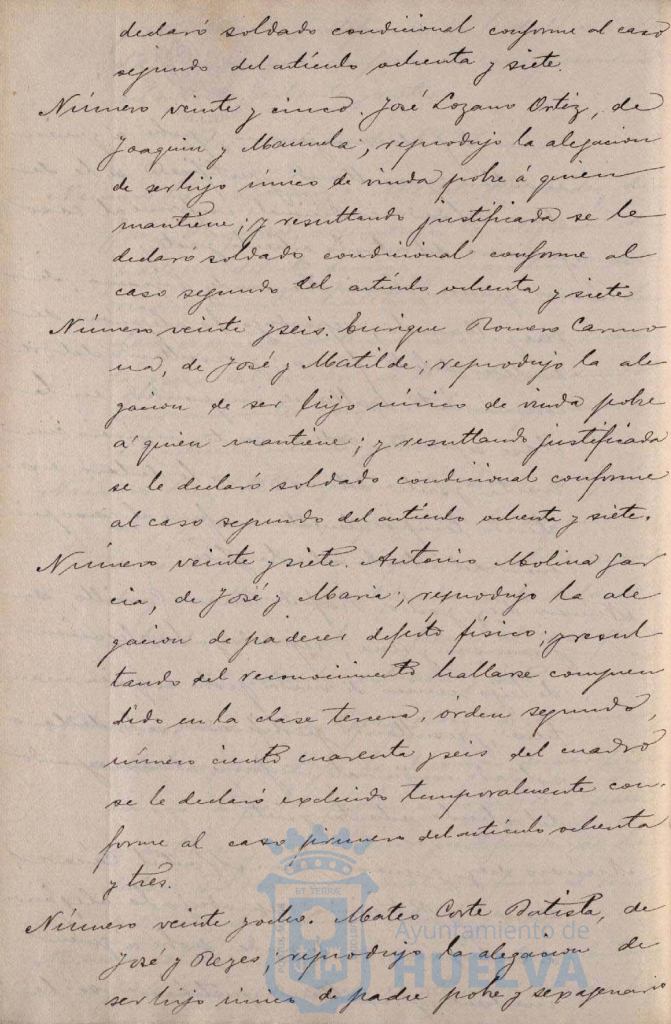 declaró soldado condicional conforme al caso
segundo del artículo ochenta y siete.
Número veinte y cinco. José Lozano Ortiz, de
Joaquin y Manuela; reprodujo la alegacion
de ser hijo único de viuda pobre á quien
mantiene; y resultando justificada se le
declaró soldado condicional conforme al
caso segundo del artículo ochenta y siete
Número veinte y seis. Enrique Romero Carmo
na, de José y Matilde; reprodujo la ale
gacion de ser hijo único de viuda pobre
á quien mantiene; y resultando justificada
se le declaró soldado condicional conforme
al caso segundo del artículo ochenta y siete.
Número veinte y siete. Antonio Molina Gar
cia, de José y Maria; reprodujo la ale
gacion de padecer defecto físico; y resul
tando del reconocimiento hallarse compren
dido en la clase tercera, órden segundo,
número ciento cuarenta y seis del cuadro
se le declaró excluido temporalmente con-
forme al caso primero del artículo ochenta
y tres.
Número veinte y ocho. Mateo Corte Batista, de
José y Reyes; reprodujo la alegacion de
ser hijo único de padre pobre y sexagenario
Ayuntamiento de
HUELVA